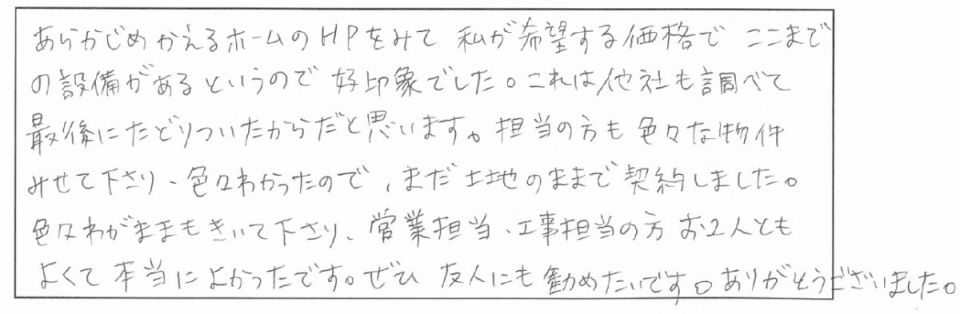 あらかじめかえるホームのHPをみて 私が希望する価格で ここまで
の設備があるというので 好印象でした。これは他社も調べて
最後にたどりついたからだと思います。担当の方も 色々な物件
みせて下さり、色々わかったので、まだ土地のままで契約しました。
色々わがままもきいて下さり、営業担当、工事担当の方 お2人とも
よくて 本当によかったです。ぜひ 友人にも勧めたいです。ありがとうございました。